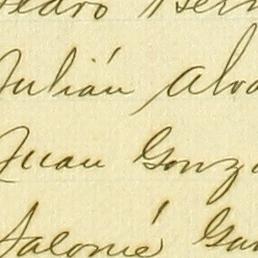 Pedro Bern
Julián Alva
Juan Gonzá
Salomé Gar